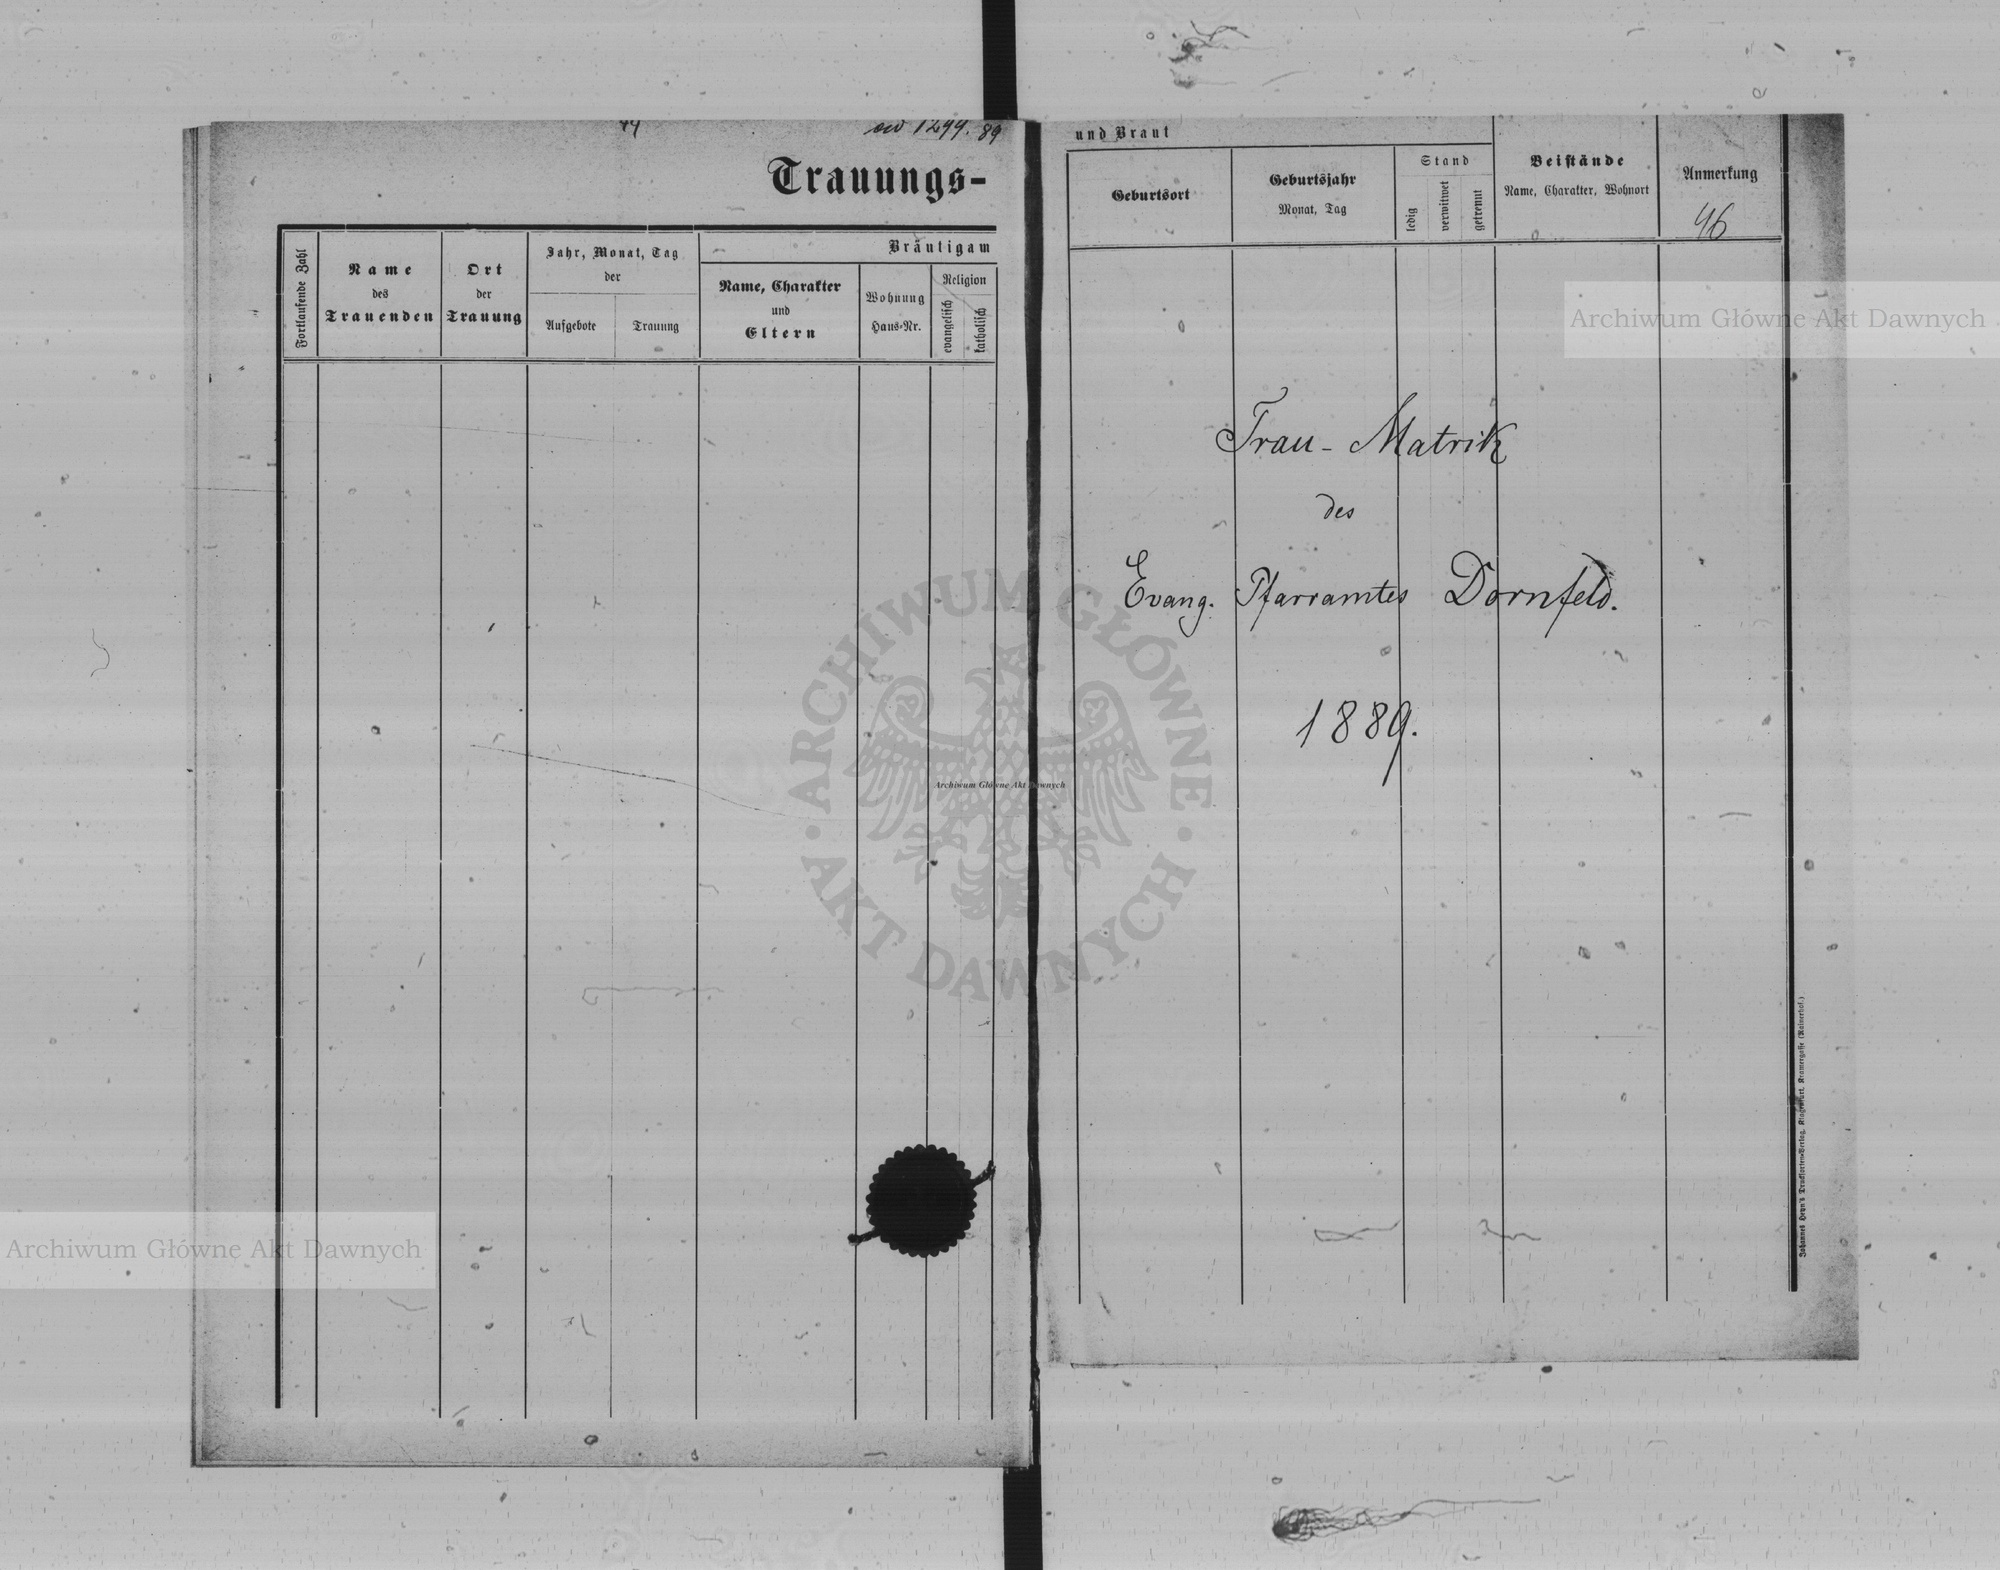 ad 1299. 89
Trauungs-
Fortlaufende Zahl
Name
des
Trauenden
Ort
der
Trauung
Jahr, Monat, Tag
der
Aufgebote
Trauung
Bräutigam
Name, Charakter
und
Eltern
Wohnung
Haus-Nr.
Religion
evangelisch
katholisch
und Braut
Geburtsort
Geburtsjahr
Monat, Tag
Stand
ledig
verwitwet
getrennt
Beistände
Name, Charakter, Wohnort
Anmerkung
46
Trau-Matrik
des
Evang. Pfarramtes Dornfeld.
1889.
Johannes Heyn's Drucksorten-Verlag, Klagenfurt, Kramergasse (Rainerhof.)
Archiwum Główne Akt Dawnych
Archiwum Główne Akt Dawnych
Archiwum Główne Akt Dawnych
ARCHIWUM GŁÓWNE
AKT DAWNYCH